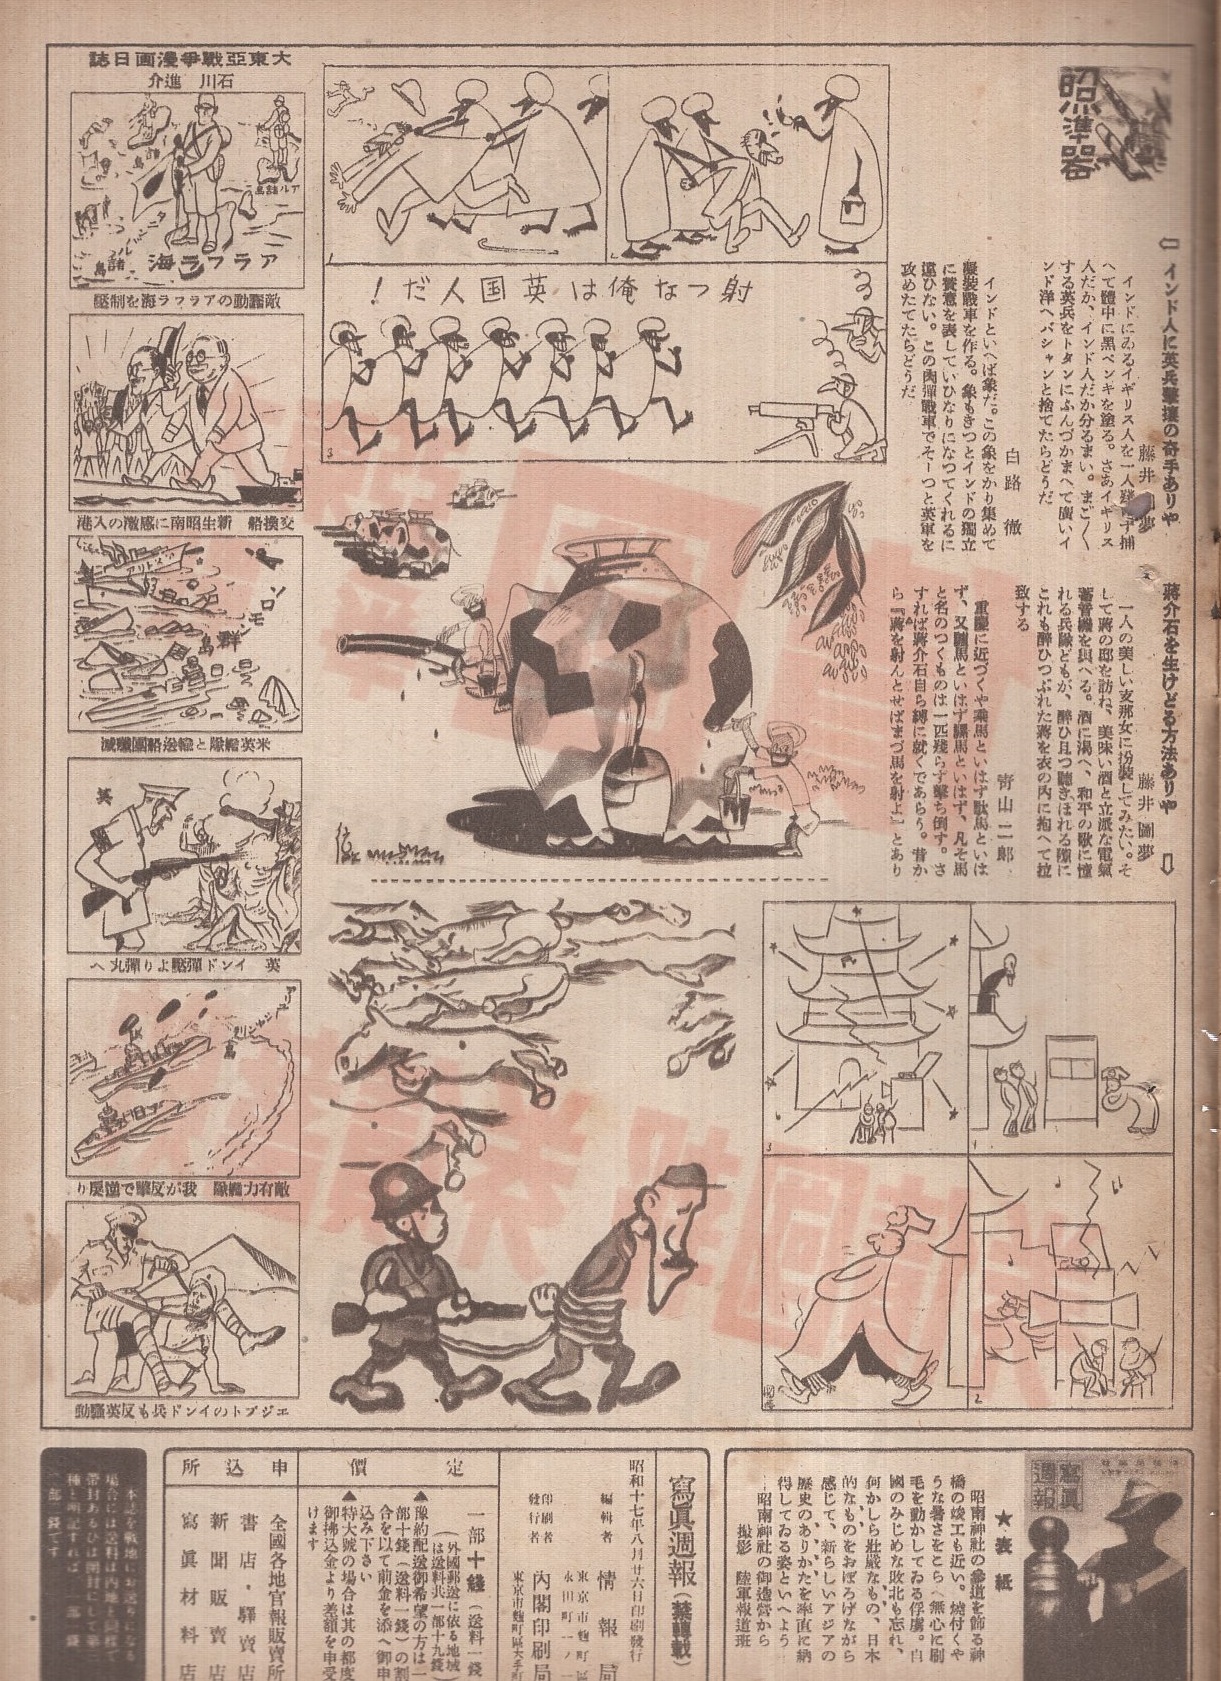 照準器
インド人に英兵撃壊の奇手ありや
インドにゐるイギリス人を一人残らず捕
へて體中に黒ペンキを塗る。さあイギリス
人だか、インド人だか分るまい。まごく
する英兵をトタンにふんづかまへて廣いイ
ンド洋へバシャンと捨てたらどうだ
白路 徹
インドといへば象だ。この象をかり集めて
擬装戰車を作る。象もきつとインドの獨立
に賛意を表していひなりになつてくれるに
違ひない。この肉彈戰車でそーつと英軍を
攻めたてたらどうだ
蔣介石を生けどる方法ありや
藤井圖夢
一人の美しい支那女に扮裝してみたい。そ
して蔣の邸を訪ね、美味い酒と立派な電氣
蓄音機を與へる。酒に渇へ、和平の歌に憧
れる兵隊どもが、醉ひ且つ聽きほれる隙に
これも醉ひつぶれた蔣を衣の内に抱へて拉
致する
山二郎
重慶に近づくや乘馬といはず馱馬といは
ず、又驢馬といはず騾馬といはず、凡そ馬
と名のつくものは一匹残らず撃ち倒す。さ
すれば蔣介石自ら縛に就くであらう。昔か
ら『將を射んとせばまづ馬を射よ』とあり
射つなな俺は英国人だ!
大東亞戰爭漫画日誌
石川進介
アラフラ海
敵蠢動のアラフラ海を制壓
交換船 新生昭南に感激の入港
ソロモン群島
米英艦隊と輸送船團殱滅
英
英 インド彈壓より彈丸へ
敵有力艦隊 我が反撃で逆戻り
エジプトのインド兵も反英騷動
寫眞週報
★表紙
昭南神社の參道を飾る神
橋の竣工も近い。燒付くや
うな暑さをこらへ無心に刷
毛を動かしてゐる俘虜。自
國のみじめな敗北も忘れ、
何かしら壯嚴なもの、日本
的なものをおぼろげながら
感じて、新らしいアジアの
歴史のありかたを率直に納
得してゐる姿といへよう
昭南神社の御造營から
撮影 陸軍報道班
寫眞週報(禁轉載)
昭和十七年八月廿六日印刷發行
編輯者 情報局
東京市麹町區
永田町一ノ一
印刷者
發行者 内閣印刷局
東京市麹町區大手町
定價
一部十錢(送料一錢)
(外國郵送に依る地域
は送料共一部十九錢)
▲豫約配送御希望の方は一
部十錢(送料一錢)の割
合を以て前金を添へ御申
込み下さい
▲特大號の場合は其の都度
御拂込金より差額を申受
けます
申込所
全國各地官報販賣所
書店・驛賣店
新聞販賣店
寫眞材料店
本誌を戰地にお送りになる
場合には送料は内地と同樣で